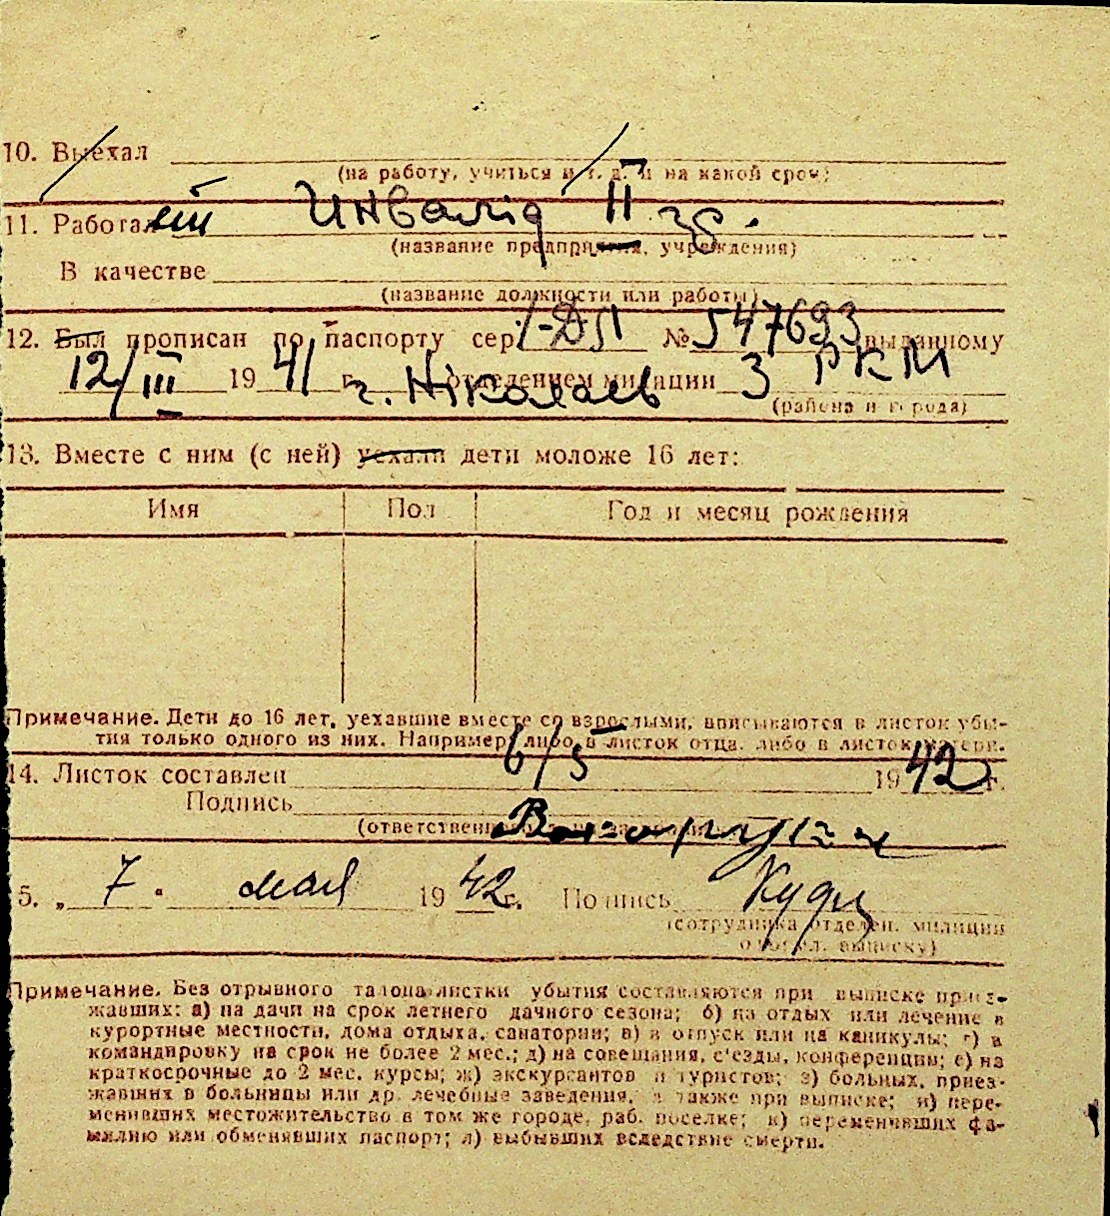 10. Выехал
(на работу, учиться и т. д. и на какой срок)
11. Работает Инвалід II гр.
(название предприятия, учреждения)
В качестве
(название должности или работы)
12. Был прописан по паспорту сер. № 547693 выданному
12/III 1941 г. отделением милиции 3 РКМ
г. Ніколаев
(района и города)
13. Вместе с ним (с ней) уехали дети моложе 16 лет:
Имя Пол Год и месяц рождения
Примечание. Дети до 16 лет, уехавшие вместе со взрослыми, вписываются в листок убы-
тия только одного из них. Например, либо в листок отца, либо в листок матери.
14. Листок составлен 6/5 1942 г.
Подпись
(ответственного
5. „ 7 " мая 1942 г. Подпись
(сотрудника отделен. милиции
выписку)
Примечание. Без отрывного талона листки убытия составляются при выписке приез-
жавших: а) на дачи на срок летнего дачного сезона; б) на отдых или лечение в
курортные местности, дома отдыха, санатории; в) в отпуск или на каникулы; г) в
командировку на срок не более 2 мес.; д) на совещания, с'езды, конференции; е) на
краткосрочные до 2 мес. курсы; ж) экскурсантов и туристов; з) больных, приез-
жавших в больницы или др. лечебные заведения, а также при выписке; и) пере-
менивших местожительство в том же городе, раб. поселке; к) переменивших фа-
милию или обменявших паспорт; л) выбывших вследствие смерти.